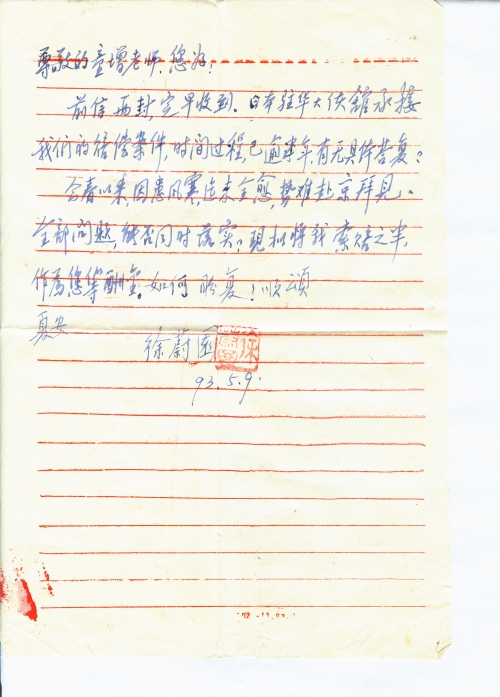 尊敬的童增老师:您好!
前信两封,定早收到。日本驻华大使馆承接
我们的赔偿案件,时间过程,已逾半年,有无具体答复?
今春以来,因患风寒迄未全愈,势难赴京拜见。
全部问题,能否同时落实。现拟将我索赔之半,
作为您等酬金。如何 盼复!顺颂
夏安
徐蔚
93.5.9.